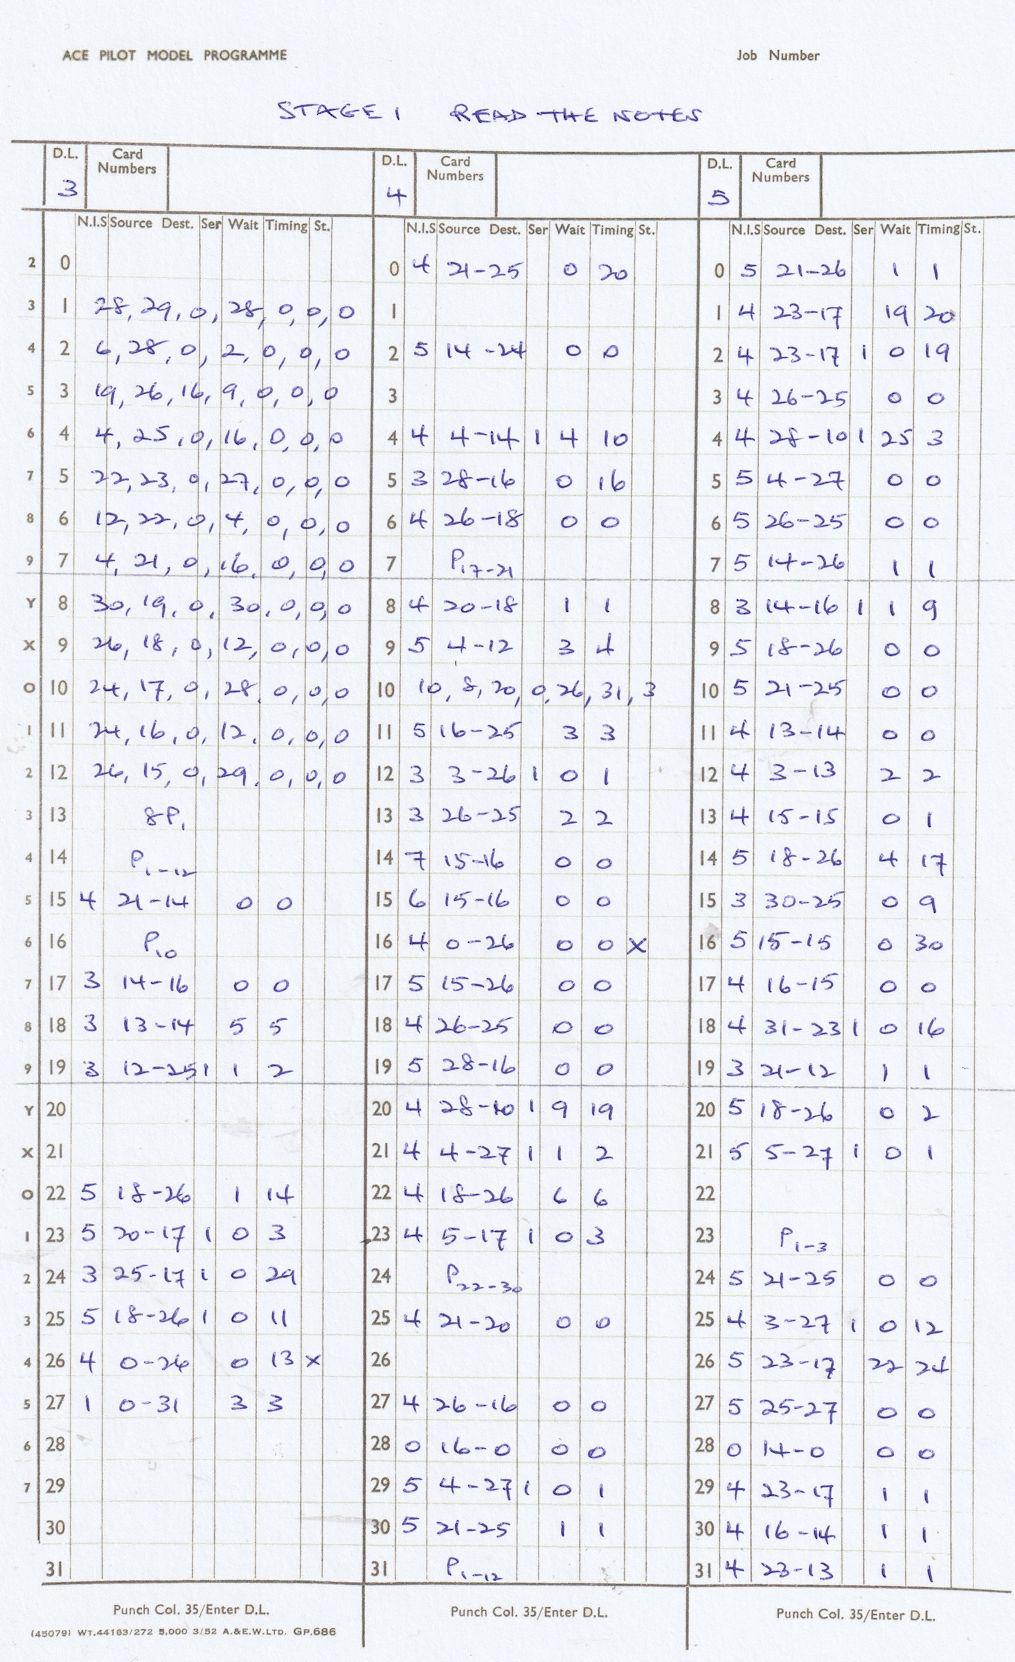 ACE PILOT MODEL PROGRAMME Job Number
STAGE 1 READ THE NOTES
D.L. 3 Card Numbers
N.I.S Source Dest. Ser Wait Timing St.
2 0
3 1 28, 29, 0, 28, 0, 0, 0
4 2 6, 28, 0, 2, 0, 0, 0
5 3 19, 26, 16, 9, 0, 0, 0
6 4 4, 25, 0, 16, 0, 0, 0
7 5 22, 23, 0, 27, 0, 0, 0
8 6 12, 22, 0, 4, 0, 0, 0
9 7 4, 21, 0, 16, 0, 0, 0
Y 8 30, 19, 0, 30, 0, 0, 0
X 9 26, 18, 0, 12, 0, 0, 0
O 10 24, 17, 0, 28, 0, 0, 0
1 11 24, 16, 0, 12, 0, 0, 0
2 12 26, 15, 0, 29, 0, 0, 0
3 13 8P1
4 14 P1-12
5 15 4 21-14 0 0
6 16 P10
7 17 3 14-16 0 0
8 18 3 13-14 5 5
9 19 3 12-25 1 1 2
Y 20
X 21
O 22 5 18-26 1 14
1 23 5 20-17 1 0 3
2 24 3 25-17 1 0 29
3 25 5 18-26 1 0 11
4 26 4 0-26 0 13 X
5 27 1 0-31 3 3
6 28
7 29
30
31
Punch Col. 35/Enter D.L.
(45079) WT.44163/272 5,000 3/52 A.&E.W.LTD. GP.686
D.L. 4 Card Numbers
N.I.S Source Dest. Ser Wait Timing St.
0 4 21-25 0 20
1
2 5 14-24 0 0
3
4 4 4-14 1 4 10
5 3 28-16 0 16
6 4 26-18 0 0
7 P17-21
8 4 20-18 1 1
9 5 4-12 3 4
10 10, 8, 20, 0, 26, 31, 3
11 5 16-25 3 3
12 3 3-26 1 0 1
13 3 26-25 2 2
14 7 15-16 0 0
15 6 15-16 0 0
16 4 0-26 0 0 X
17 5 15-26 0 0
18 4 26-25 0 0
19 5 28-16 0 0
20 4 28-10 1 9 19
21 4 4-27 1 1 2
22 4 18-26 6 6
23 4 5-17 1 0 3
24 P22-30
25 4 21-20 0 0
26
27 4 26-16 0 0
28 0 16-0 0 0
29 5 4-27 1 0 1
30 5 21-25 1 1
31 P1-12
Punch Col. 35/Enter D.L.
D.L. 5 Card Numbers
N.I.S Source Dest. Ser Wait Timing St.
0 5 21-26 1 1
1 4 23-17 19 20
2 4 23-17 1 0 19
3 4 26-25 0 0
4 4 28-10 1 25 3
5 5 4-27 0 0
6 5 26-25 0 0
7 5 14-26 1 1
8 3 14-16 1 1 9
9 5 18-26 0 0
10 5 21-25 0 0
11 4 13-14 0 0
12 4 3-13 2 2
13 4 15-15 0 1
14 5 18-26 4 17
15 3 30-25 0 9
16 5 15-15 0 30
17 4 16-15 0 0
18 4 31-23 1 0 16
19 3 21-12 1 1
20 5 18-26 0 2
21 5 5-27 1 0 1
22
23 P1-3
24 5 21-25 0 0
25 4 3-27 1 0 12
26 5 23-17 22 24
27 5 25-27 0 0
28 0 14-0 0 0
29 4 23-17 1 1
30 4 16-14 1 1
31 4 23-13 1 1
Punch Col. 35/Enter D.L.